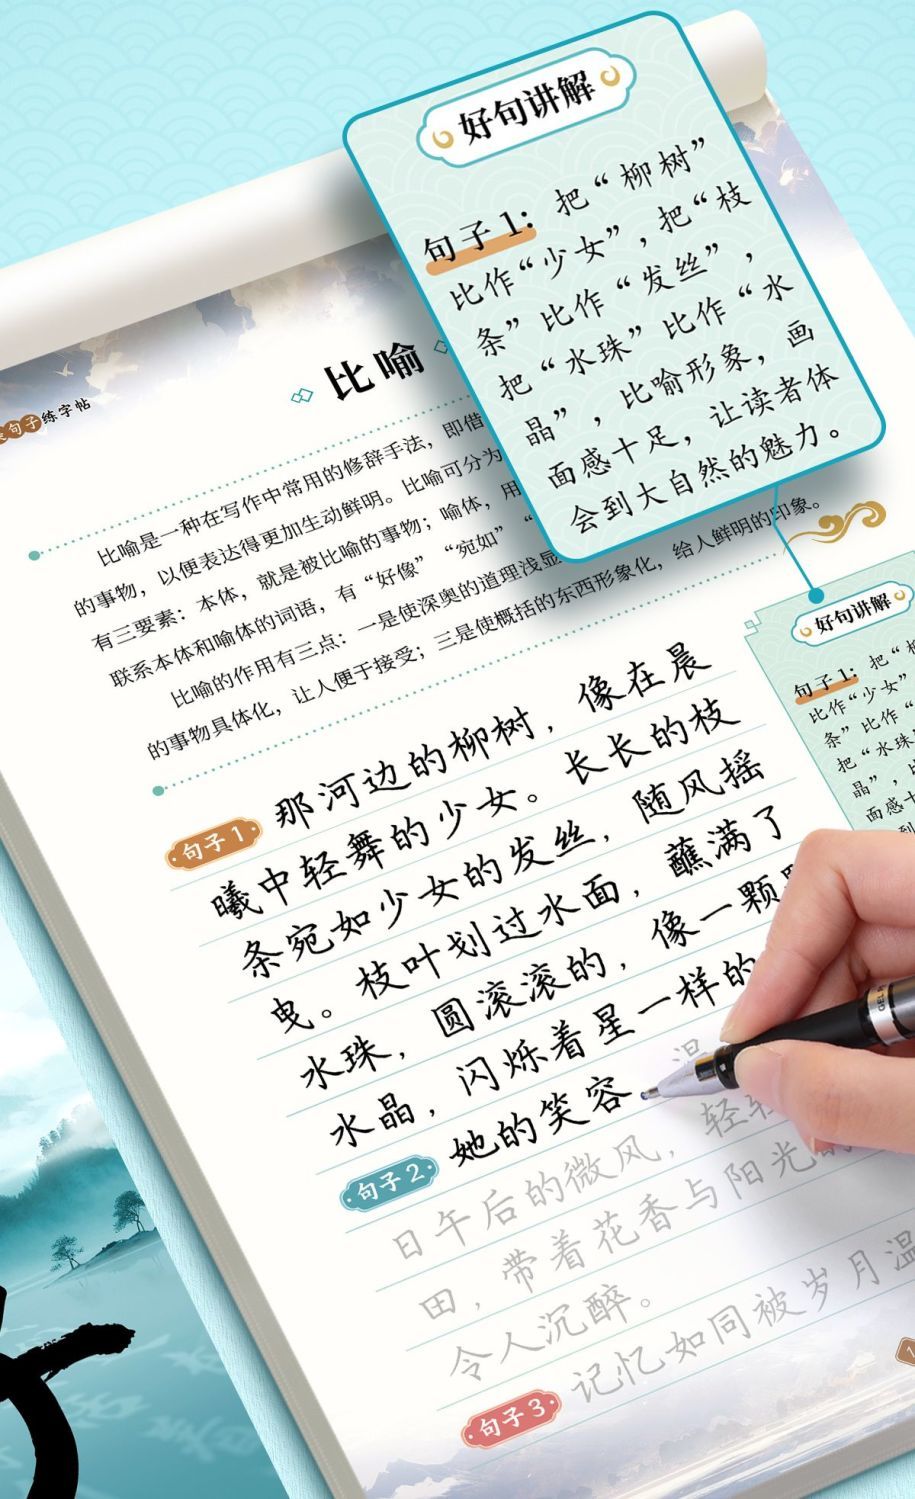 好句讲解
句子1：把“柳树”
比作“少女”，把“枝
条”比作“发丝”，
把“水珠”比作“水
晶”，比喻形象，画
面感十足，让读者体
会到大自然的魅力。
句子练字帖
比喻
比喻是一种在写作中常用的修辞手法，即借
的事物，以便表达得更加生动鲜明。比喻可分为
有三要素：本体，就是被比喻的事物；喻体，用
联系本体和喻体的词语，有“好像”“宛如”“
比喻的作用有三点：一是使深奥的道理浅显
的事物具体化，让人便于接受；三是使概括的东西形象化，给人鲜明的印象。
好句讲解
句子1：把“柳
比作“少女”
条”比作“
把“水珠”
晶”，比
面感十
会到
句子1 那河边的柳树，像在晨
曦中轻舞的少女。长长的枝
条宛如少女的发丝，随风摇
曳。枝叶划过水面，蘸满了
水珠，圆滚滚的，像一颗
水晶，闪烁着星一样的
句子2 她的笑容 温
日午后的微风，轻轻
田，带着花香与阳光的
令人沉醉。
句子3 记忆如同被岁月温